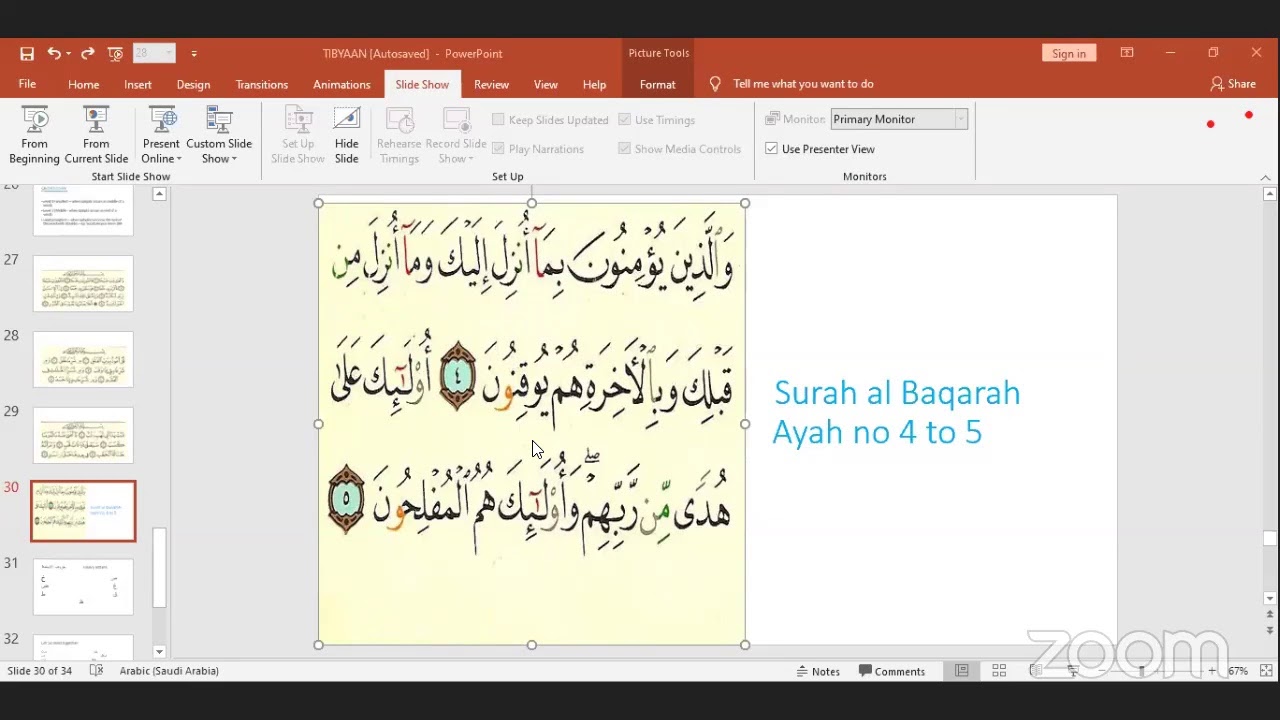 28
TIBYAAN [Autosaved] - PowerPoint
Picture Tools
Sign in
File Home Insert Design Transitions Animations Slide Show Review View Help Format Tell me what you want to do Share
From Beginning
From Current Slide
Present Online
Custom Slide Show
Set Up Slide Show
Hide Slide
Rehearse Timings
Record Slide Show
Keep Slides Updated
Play Narrations
Use Timings
Show Media Controls
Monitor: Primary Monitor
Use Presenter View
Start Slide Show
Set Up
Monitors
27
28
29
30
31
32
وَالَّذِينَ يُؤْمِنُونَ بِمَآ أُنزِلَ إِلَيْكَ وَمَآ أُنزِلَ مِن
قَبْلِكَ وَبِالْأَخِرَةِ هُمْ يُوقِنُونَ ٤ أُوْلَٰٓئِكَ عَلَىٰ
هُدًى مِّن رَّبِّهِمْ ۖ وَأُوْلَٰٓئِكَ هُمُ ٱلْمُفْلِحُونَ ٥
Surah al Baqarah
Ayah no 4 to 5
zoom
Slide 30 of 34
Arabic (Saudi Arabia)
Notes
Comments
67%